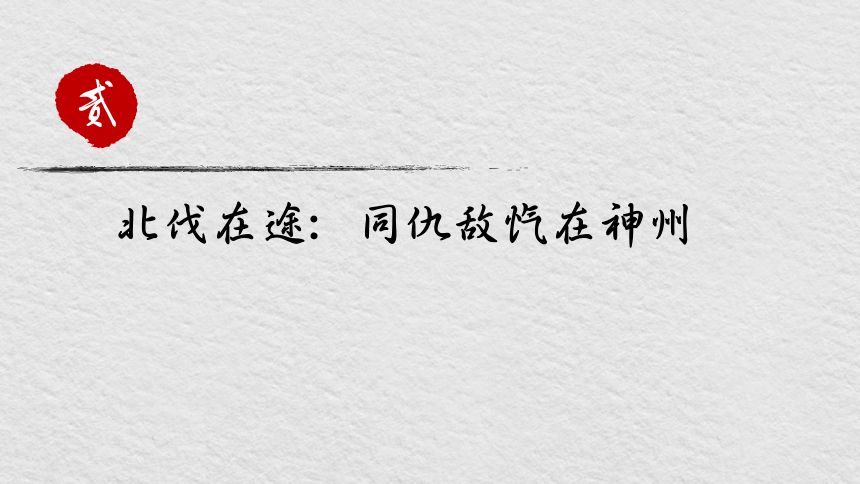 贰
北伐在途：同仇敌忾在神州